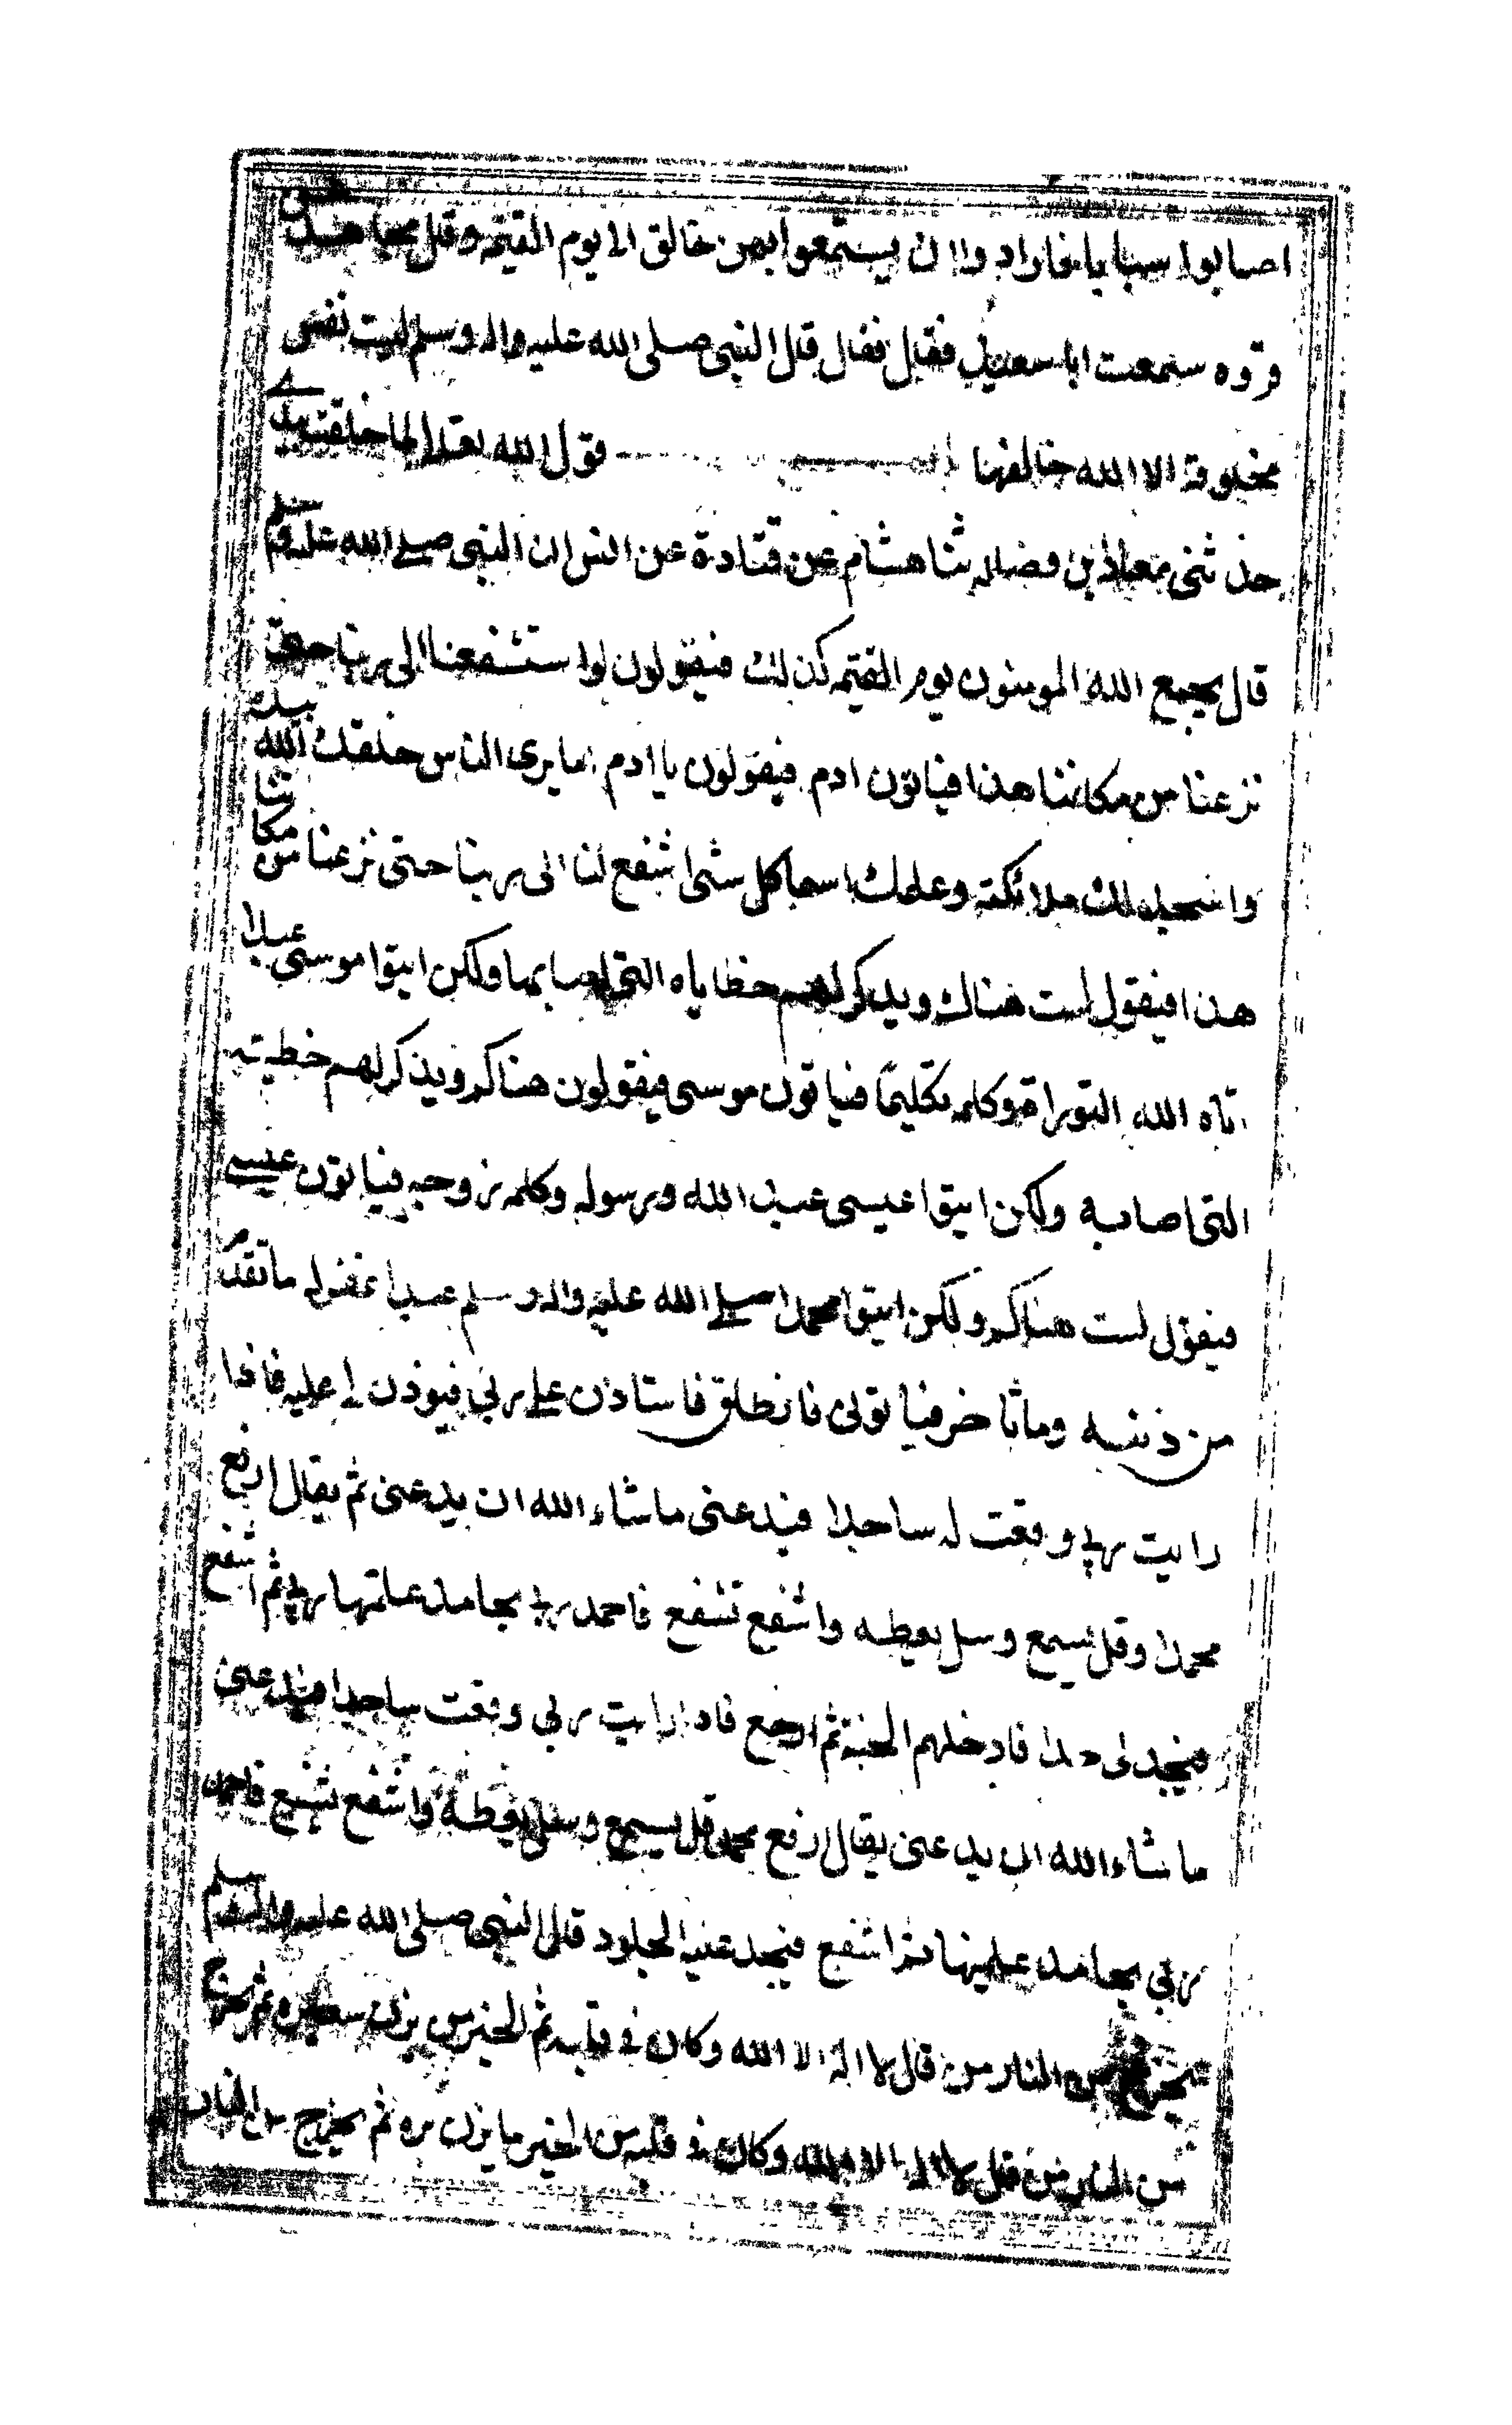 اصابوا سبايا فارادوا ان يستمتعوا بهن خالق الا يوم القيمة وقال مجاهد عن
قروه سمعت ابا سعيد فقال فقال قال النبى صلى الله عليه واله وسلم ليست نفس
مخلوقة الا الله خالقها باب قول الله تعالى لما خلقت بيدى
حدثنى معاذ بن فضاله ثنا هشام عن قتادة عن انس ان النبى صلى الله عليه وسلم
قال يجمع الله المومنون يوم القيمة كذلك فيقولون لوا ستشفعنا الى ربنا حتى
نزعنا من مكاننا هذا فياتون ادم فيقولون يا ادم اما يرى الناس خلقك الله بيده
واسجد لك ملائكته وعلمك اسماكل شى اشفع لنا الى ربنا حتى نزعنا من مكاننا
هذا فيقول لست هناك ويذكر لهم خطاياه التى اصابها ولكن ايتوا موسى عبدا
اتاه الله التوراة وكلمه تكليما فياتون موسى فيقولون هناكم ويذكر لهم خطيته
التى اصابه ولكن ايتوا عيسى عبد الله ورسوله وكلمه روحه فياتون عيسى
فيقول لست هناكم ولكن ايتوا محمدا صلى الله عليه واله وسلم عبدا غفر له ماتقدم
من ذنبه وماتاخر فياتولى فانطلق فاستاذن على ربى فيوذن لى عليه فاذا
رايت ربى وقعت له ساجدا فيدعنى ماشاء الله ان يدعنى ثم يقال ارفع
محمدا وقل تسمع وسل تعطه واشفع تشفع فاحمد ربى بمحامد علمتها ربى ثم اشفع
فيحد لى حدا فادخلهم الجنة ثم ارجع فاذا رايت ربى وقعت ساجدا فيدعنى
ماشاء الله ان يدعنى يقال ارفع محمد قل تسمع وسل تعطه واشفع تشفع فاحمد
ربى بمحامد علمنيها ثم اشفع فيحد عنيه الجلود قال النبى صلى الله عليه واله وسلم
يخرج من النار من قال لا اله الا الله وكان فى قلبه ثم الخير يزن شعيره ثم يخرج
من النار من قال لا اله الا الله وكان فى قلبه من الخير ما يزن بره ثم يخرج من النار